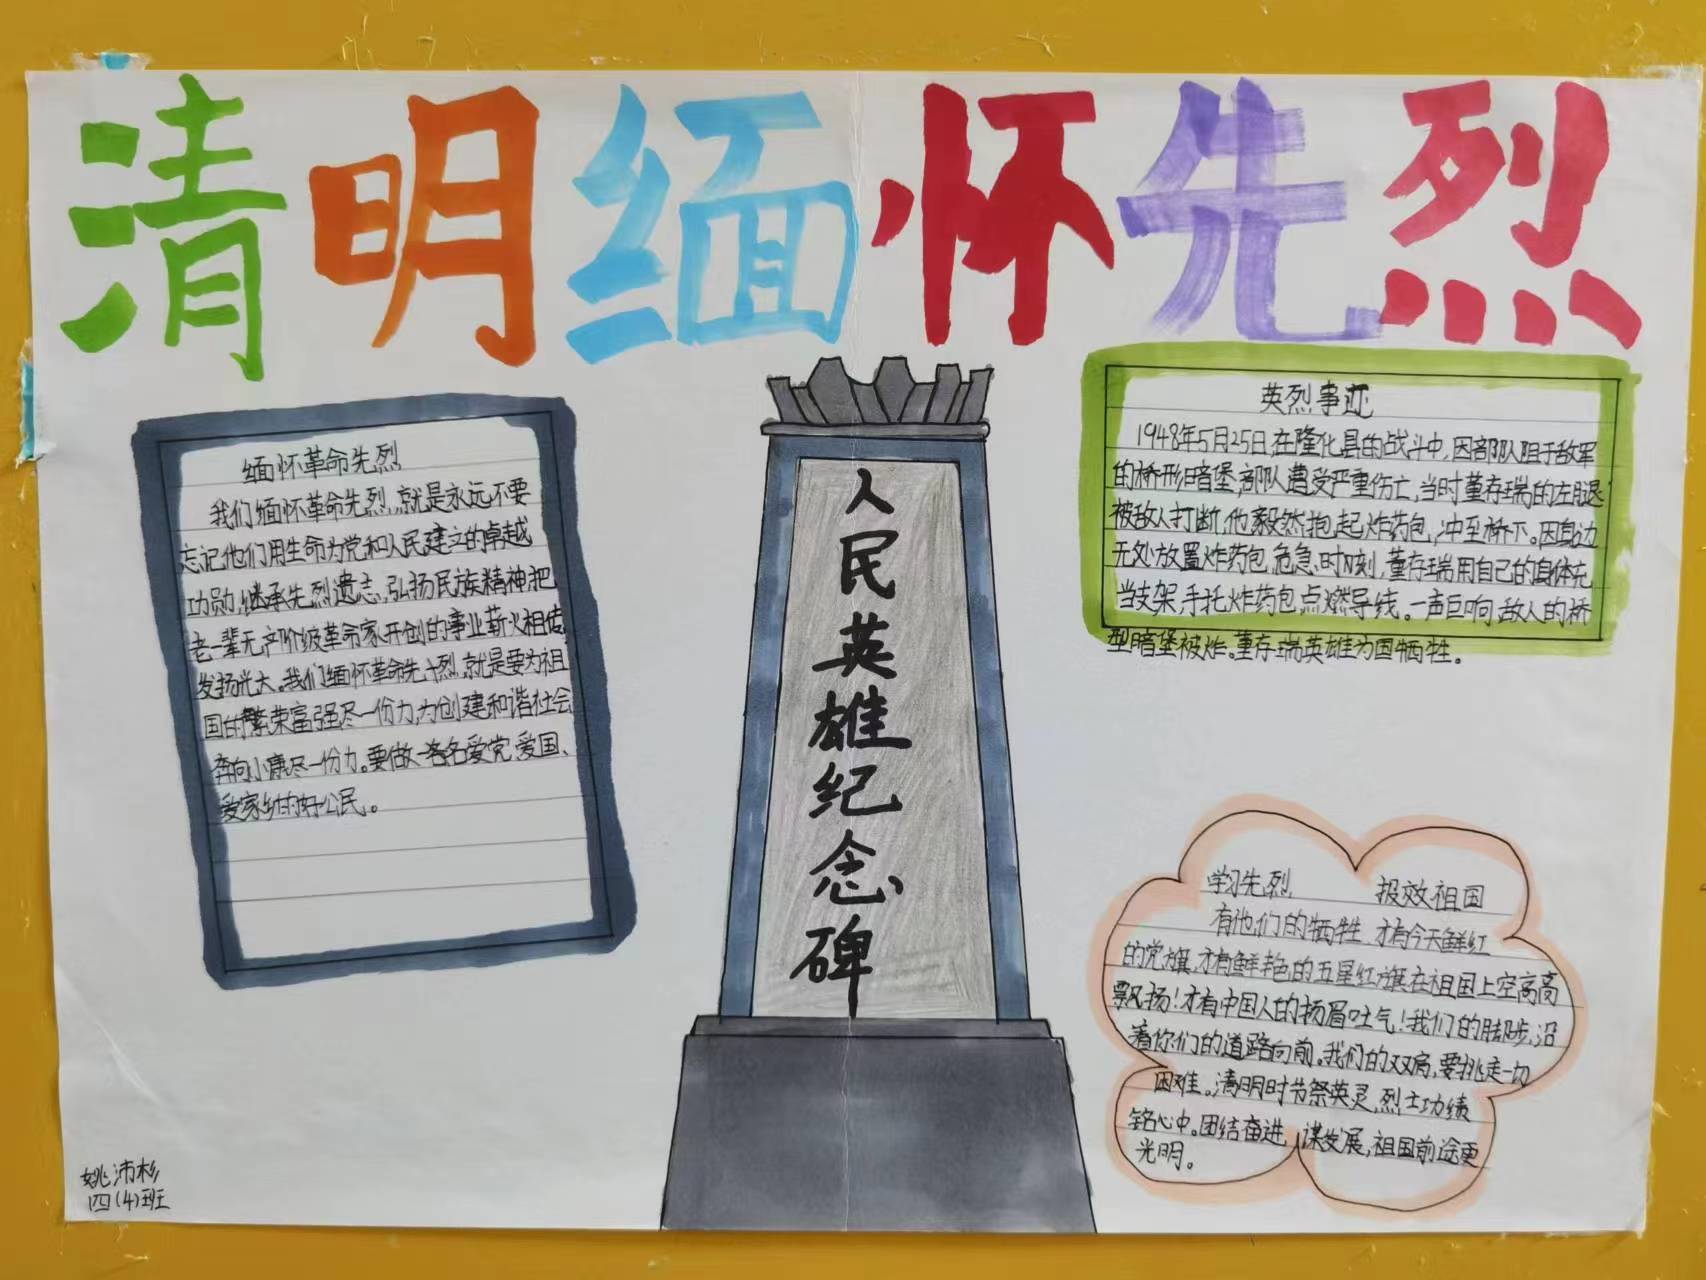 清明缅怀先烈
缅怀革命先烈
我们缅怀革命先烈,就是永远不要
忘记他们用生命为党和人民建立的卓越
功勋,继承先烈遗志,弘扬民族精神把
老一辈无产阶级革命家开创的事业薪火相传
发扬光大。我们缅怀革命先烈,就是要为祖
国的繁荣富强尽一份力,为创建和谐社会
奔向小康尽一份力。要做一名爱党、爱国、
爱家乡的好公民。
人
民
英
雄
纪
念
碑
英烈事迹
1948年5月25日,在隆化县的战斗中,因部队阻于敌军
的桥形暗堡,部队遭受严重伤亡,当时董存瑞的左腿
被敌人打断,他毅然抱起炸药包,冲至桥下。因身边
无处放置炸药包,危急时刻,董存瑞用自己的身体充
当支架,手托炸药包,点燃导线。一声巨响,敌人的桥
型暗堡被炸。董存瑞英雄为国牺牲。
学习先烈 报效祖国
有他们的牺牲,才有今天鲜红
的党旗,才有鲜艳色的五星红旗在祖国上空高高
飘扬!才有中国人的扬眉吐气!我们的脚步,沿
着你们的道路向前。我们的双肩,要挑走一切
困难。清明时节祭英灵,烈士功绩
铭心中。团结奋进 谋发展,祖国前途更
光明。
姚沛杉
四(4)班